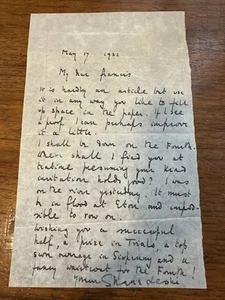 May 17 1932
My dear Francis
It is hardly an article but use
it in any way you like to fill
up space in the paper. If I see
a proof I can perhaps improve
it a little.
I shall be down on the Fourth.
Where shall I find you at
teatime presuming your kind
invitation holds good? I was
on the river yesterday. It must
be in flood at Eton and impos-
sible to row on.
Wishing you a successful
half, a prize in Trials, a top
average in Sixpenny and a
fancy waistcoat for the Fourth!
Shane Leslie